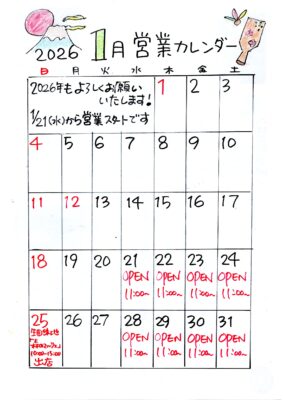 2026 1月 営業カレンダー
日 月 火 水 木 金 土
2026年もよろしくお願い
いたします!
1/21(水)から営業スタートです
1 2 3
4 5 6 7 8 9 10
11 12 13 14 15 16 17
18 19 20 21 22 23 24
OPEN OPEN OPEN OPEN
11:00~ 11:00~ 11:00~ 11:00~
25 26 27 28 29 30 31
OPEN OPEN OPEN OPEN
11:00~ 11:00~ 11:00~ 11:00~
10:00~15:00
出店